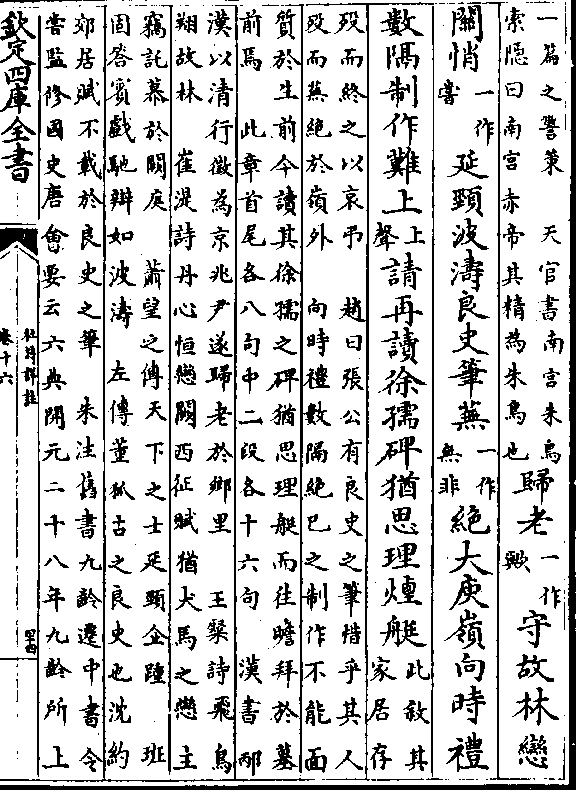 一篇之警策　天官書南宮朱鳥
索隱曰南宮赤帝其精為朱鳥也
歸老一作歟守故林戀
闕悄一作嘗延頸波濤良史筆蕪一作無非絕大庾嶺向時禮
數隔制作難上上聲請再讀徐孺碑猶思理煙艇此敘其家居存
歿而終之以哀弔　趙曰張公有良史之筆惜乎其人
歿而蕪絕於嶺外　向時禮數隔絕已之制作不能面
質於生前今讀其徐孺之碑猶思理艇而往瞻拜於墓
前焉　此章首尾各八句中二段各十六句　漢書邴
漢以清行徵為京兆尹遂歸老於鄉里　王粲詩飛鳥
翔故林　崔湜詩丹心恒戀闕西征賦猶犬馬之戀主
竊託慕於闕庭　蕭望之傳天下之士延頸企踵　班
固答賓戲馳辯如波濤　左傳董狐古之良史也沈約
郊居賦不載於良史之筆　朱注舊書九齡遷中書令
嘗監修國史唐會要云六典開元二十八年九齡所上
欽定四庫全書
杜詩詳註
卷十六